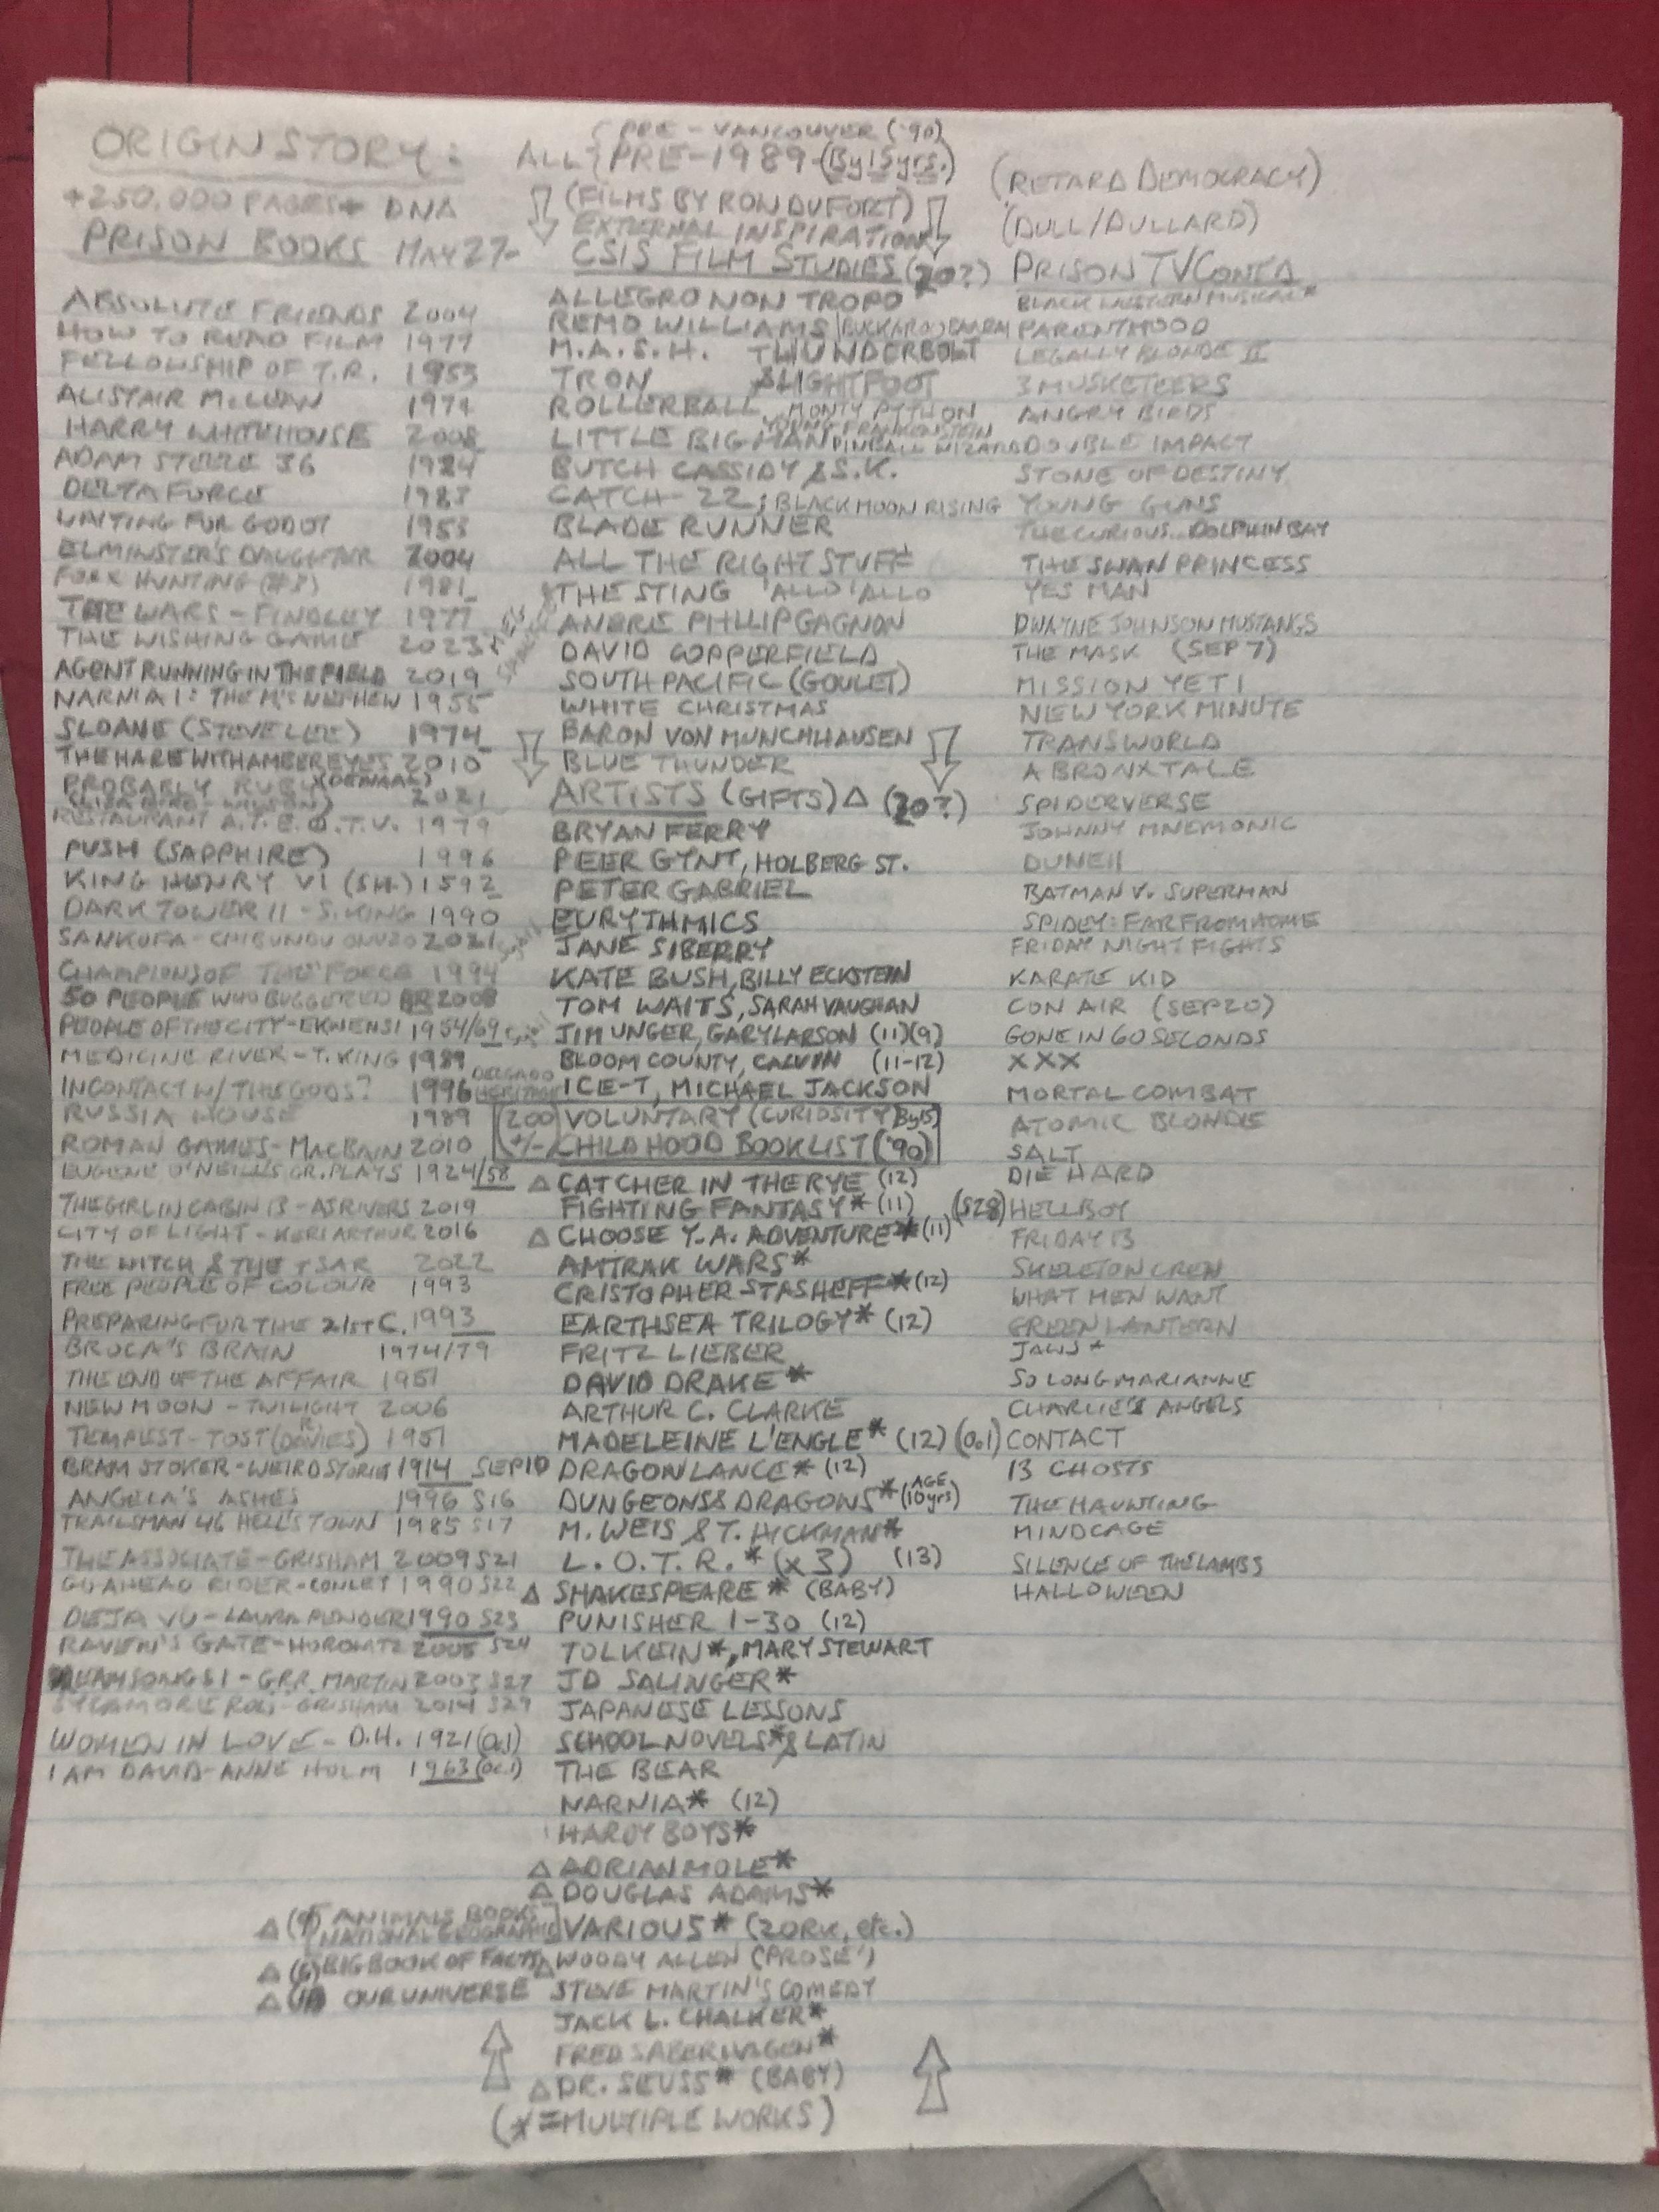 ORIGIN STORY:
+250,000 PAGES+ DNA
PRISON BOOKS MAY 27-
ABSOLUTE FRIENDS 2004
HOW TO READ FILM 1977
FELLOWSHIP OF T.R. 1953
ALISTAIR McLEAN 1979
HARRY WHITEHOUSE 2008
ADAM STEELE 36 1984
DELTA FORCE 1983
WAITING FOR GODOT 1953
ELMINSTER'S DAUGHTER 2004
FOXX HUNTING (#3) 1981
THE WARS - FINDLEY 1977
THE WISHING GAME 2023
AGENT RUNNING IN THE FIELD 2019
NARNIA 1: THE M'S NEPHEW 1955
SLOANE (STEVE LEE) 1974
THE HARE WITH AMBER EYES 2010
(DE WAAL)
PROBABLY RUBY 2021
(LISA BIRD-WILSON)
RESTAURANT A.T.E.O.T.U. 1979
PUSH (SAPPHIRE) 1996
KING HENRY VI (SH.) 1592
DARK TOWER II - S. KING 1990
SANKOFA - CHIBUNDU ONUZO 2021
CHAMPIONS OF THE FORCE 1994
50 PEOPLE WHO BUGGERED BR 2008
PEOPLE OF THE CITY - EKWENSI 1954/69
MEDICINE RIVER - T. KING 1989
IN CONTACT W/ THE GODS? 1996
DELGADO
HERITAGE
RUSSIA HOUSE 1989
ROMAN GAMES - MACBAIN 2010
EUGENE O'NEILL'S GR. PLAYS 1924/58
THE GIRL IN CABIN 13 - AJ RIVERS 2019
CITY OF LIGHT - KERI ARTHUR 2016
THE WITCH & THE TSAR 2022
FREE PEOPLE OF COLOUR 1993
PREPARING FOR THE 21st C. 1993
BROCA'S BRAIN 1974/79
THE END OF THE AFFAIR 1951
NEW MOON - TWILIGHT 2006
TEMPEST-TOST (R DAVIES) 1951
BRAM STOKER - WEIRD STORIES 1914 SEP10
ANGELA'S ASHES 1996 S16
TRAILSMAN 46 HELL'S TOWN 1985 S17
THE ASSOCIATE - GRISHAM 2009 S21
GO AHEAD RIDER - CONLEY 1990 S22
DEJA VU - LAURA PENDER 1990 S23
RAVEN'S GATE - HOROWITZ 2005 S24
DREAMSONGS 1 - G.R.R. MARTIN 2003 S27
SYCAMORE ROW - GRISHAM 2014 S29
WOMEN IN LOVE - D.H. 1921 (O.1)
I AM DAVID - ANNE HOLM 1963 (Oc.1)
(PRE-VANCOUVER ('90)
ALL {PRE-1989 (By 15 yrs.)
(FILMS BY RON DUFORT)
EXTERNAL INSPIRATION
CSIS FILM STUDIES (20?)
ALLEGRO NON TROPO
REMO WILLIAMS | BUCKAROO BANZAI
M.A.S.H. THUNDERBOLT
TRON & LIGHTFOOT
ROLLERBALL, MONTY PYTHON
YOUNG FRANKENSTEIN
LITTLE BIG MAN PINBALL WIZARD
BUTCH CASSIDY & S.K.
CATCH-22; BLACK MOON RISING
BLADE RUNNER
ALL THE RIGHT STUFF
THE STING 'ALLO 'ALLO
ANDRE PHILLIP GAGNON
DAVID COPPERFIELD
SOUTH PACIFIC (GOULET)
WHITE CHRISTMAS
BARON VON MUNCHHAUSEN
BLUE THUNDER
ARTISTS (GIFTS) △ (20?)
BRYAN FERRY
PEER GYNT, HOLBERG ST.
PETER GABRIEL
EURYTHMICS
JANE SIBERRY
KATE BUSH, BILLY ECKSTEIN
TOM WAITS, SARAH VAUGHAN
JIM UNGER, GARY LARSON (11)(9)
BLOOM COUNTY, CALVIN (11-12)
ICE-T, MICHAEL JACKSON
200 VOLUNTARY (CURIOSITY) By 15
+/- CHILDHOOD BOOKLIST ('90)
△ CATCHER IN THE RYE (12)
FIGHTING FANTASY* (11)
△ CHOOSE Y.A. ADVENTURE* (11)
AMTRAK WARS*
CRISTOPHER STASHEFF* (12)
EARTHSEA TRILOGY* (12)
FRITZ LIEBER
DAVID DRAKE*
ARTHUR C. CLARKE
MADELEINE L'ENGLE* (12)
DRAGONLANCE* (12)
DUNGEONS & DRAGONS* (AGE 10yrs)
M. WEIS & T. HICKMAN*
L.O.T.R.* (x3) (13)
△ SHAKESPEARE* (BABY)
PUNISHER 1-30 (12)
TOLKEIN*, MARY STEWART
JD SALINGER*
JAPANESE LESSONS
SCHOOL NOVELS* & LATIN
THE BEAR
NARNIA* (12)
HARDY BOYS*
△ ADRIAN MOLE*
△ DOUGLAS ADAMS*
△ (9) ANIMALS BOOKS
NATIONAL GEOGRAPHIC
VARIOUS* (ZORK, etc.)
△ (6) BIG BOOK OF FACTS
△ WOODY ALLEN ('PROSE')
△ OUR UNIVERSE
STEVE MARTIN'S COMEDY
JACK L. CHALKER*
FRED SABERHAGEN*
△ DR. SEUSS* (BABY)
(* = MULTIPLE WORKS)
(RETARD DEMOCRACY)
(DULL/DULLARD)
PRISON TV CONT'D
BLACK WESTERN MUSICAL*
PARENTHOOD
LEGALLY BLONDE II
3 MUSKETEERS
ANGRY BIRDS
DOUBLE IMPACT
STONE OF DESTINY
YOUNG GUNS
THE CURIOUS... DOLPHIN BAY
THE SWAN PRINCESS
YES MAN
DWAYNE JOHNSON MUSTANGS
THE MASK (SEP 7)
MISSION YETI
NEW YORK MINUTE
TRANSWORLD
A BRONX TALE
SPIDERVERSE
JOHNNY MNEMONIC
DUNE II
BATMAN V. SUPERMAN
SPIDEY: FAR FROM HOME
FRIDAY NIGHT FIGHTS
KARATE KID
CON AIR (SEP20)
GONE IN 60 SECONDS
XXX
MORTAL COMBAT
ATOMIC BLONDE
SALT
DIE HARD
(S28) HELLBOY
FRIDAY 13
SKELETON CREW
WHAT MEN WANT
GREEN LANTERN
JAWS*
SO LONG MARIANNE
CHARLIE'S ANGELS
(O.1) CONTACT
13 GHOSTS
THE HAUNTING
MINDCAGE
SILENCE OF THE LAMBS
HALLOWEEN